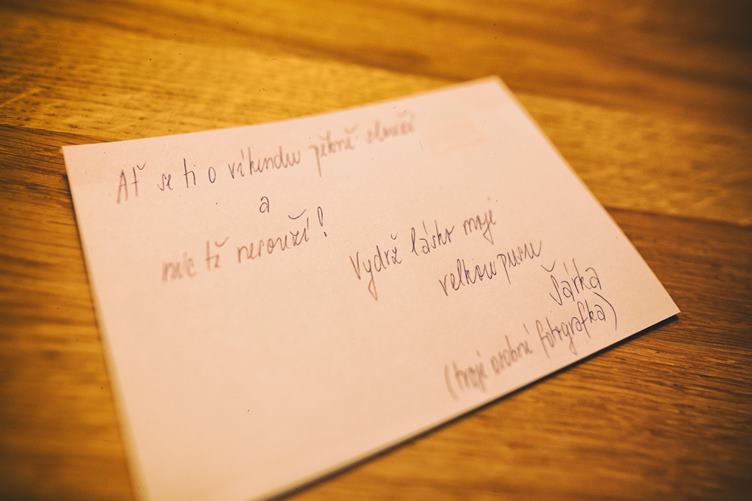 Ať se ti o víkendu pěkně slouží
a
nic tě nesouží!
Vydrž lásko moje
velkou pusu
Šárka
(tvoje osobní fotografka)